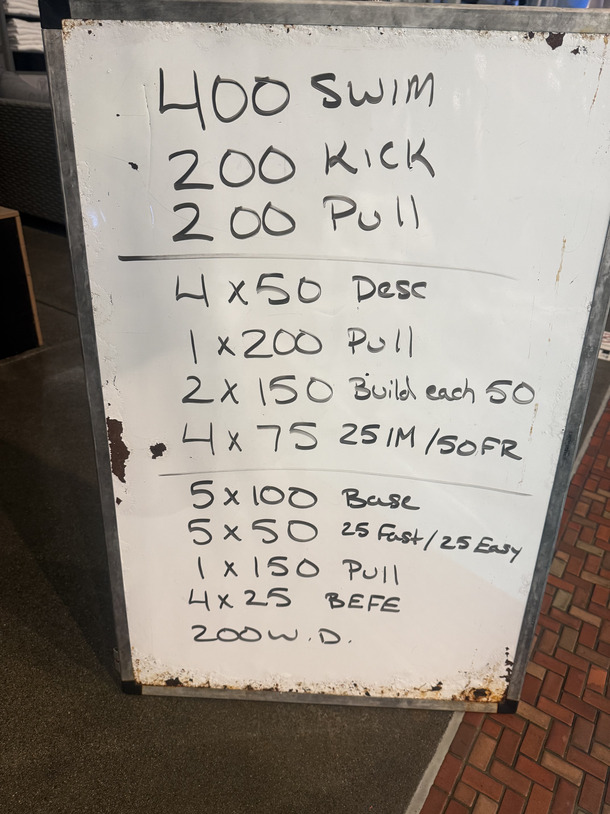 400 SWIM
200 KICK
200 Pull
4 x 50 Desc
1 x 200 Pull
2 x 150 Build each 50
4 x 75 25 IM / 50 FR
5 x 100 Base
5 x 50 25 Fast / 25 Easy
1 x 150 Pull
4 x 25 BEFE
200 W.D.